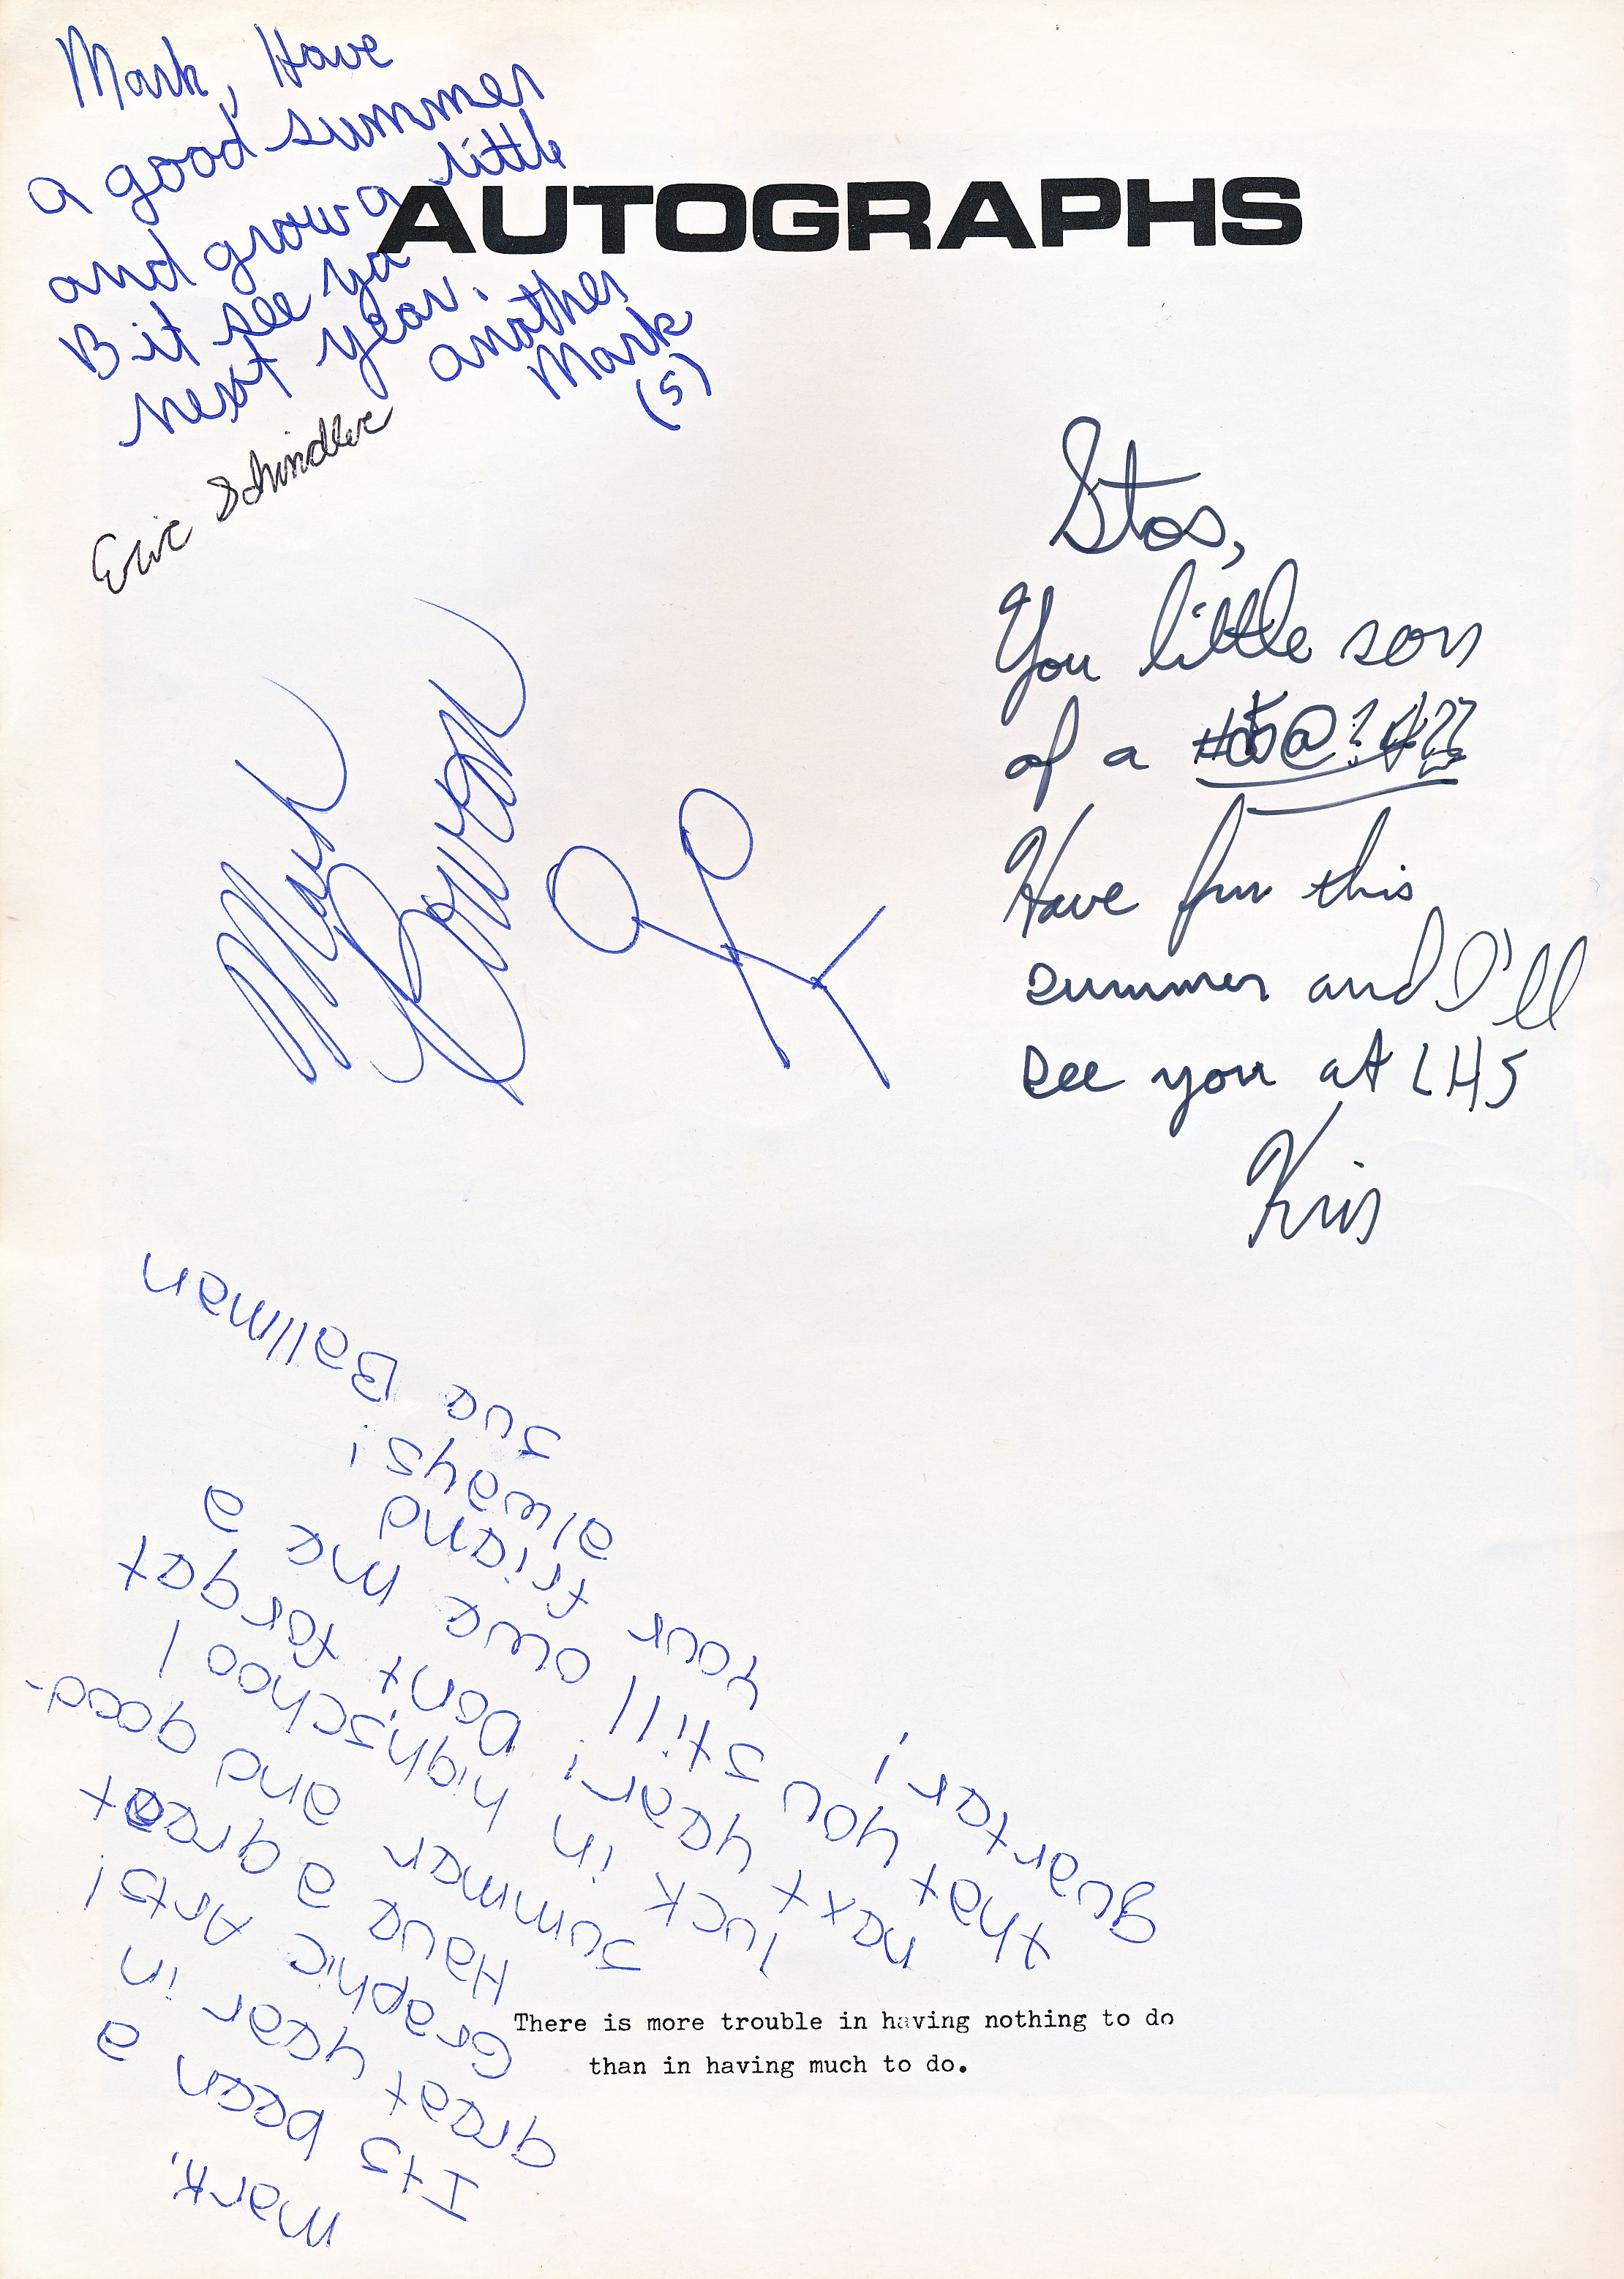 Mark, Have
a good summer
and grow a little
Bit see ya
next year.
another
Mark
(S)
AUTOGRAPHS
Eric Schindler
Stos,
You little son
of a
Have fun this
summer and I'll
see you at LHS
Kris
Mark
Mark,
Its been a
great year in
Graphic Arts!
Have a great
summer and good-
luck in highschool
next year! Dont forget
that you still owe me a
quarter!
Your friend
always!
Sue Ballman
There is more trouble in having nothing to do
than in having much to do.